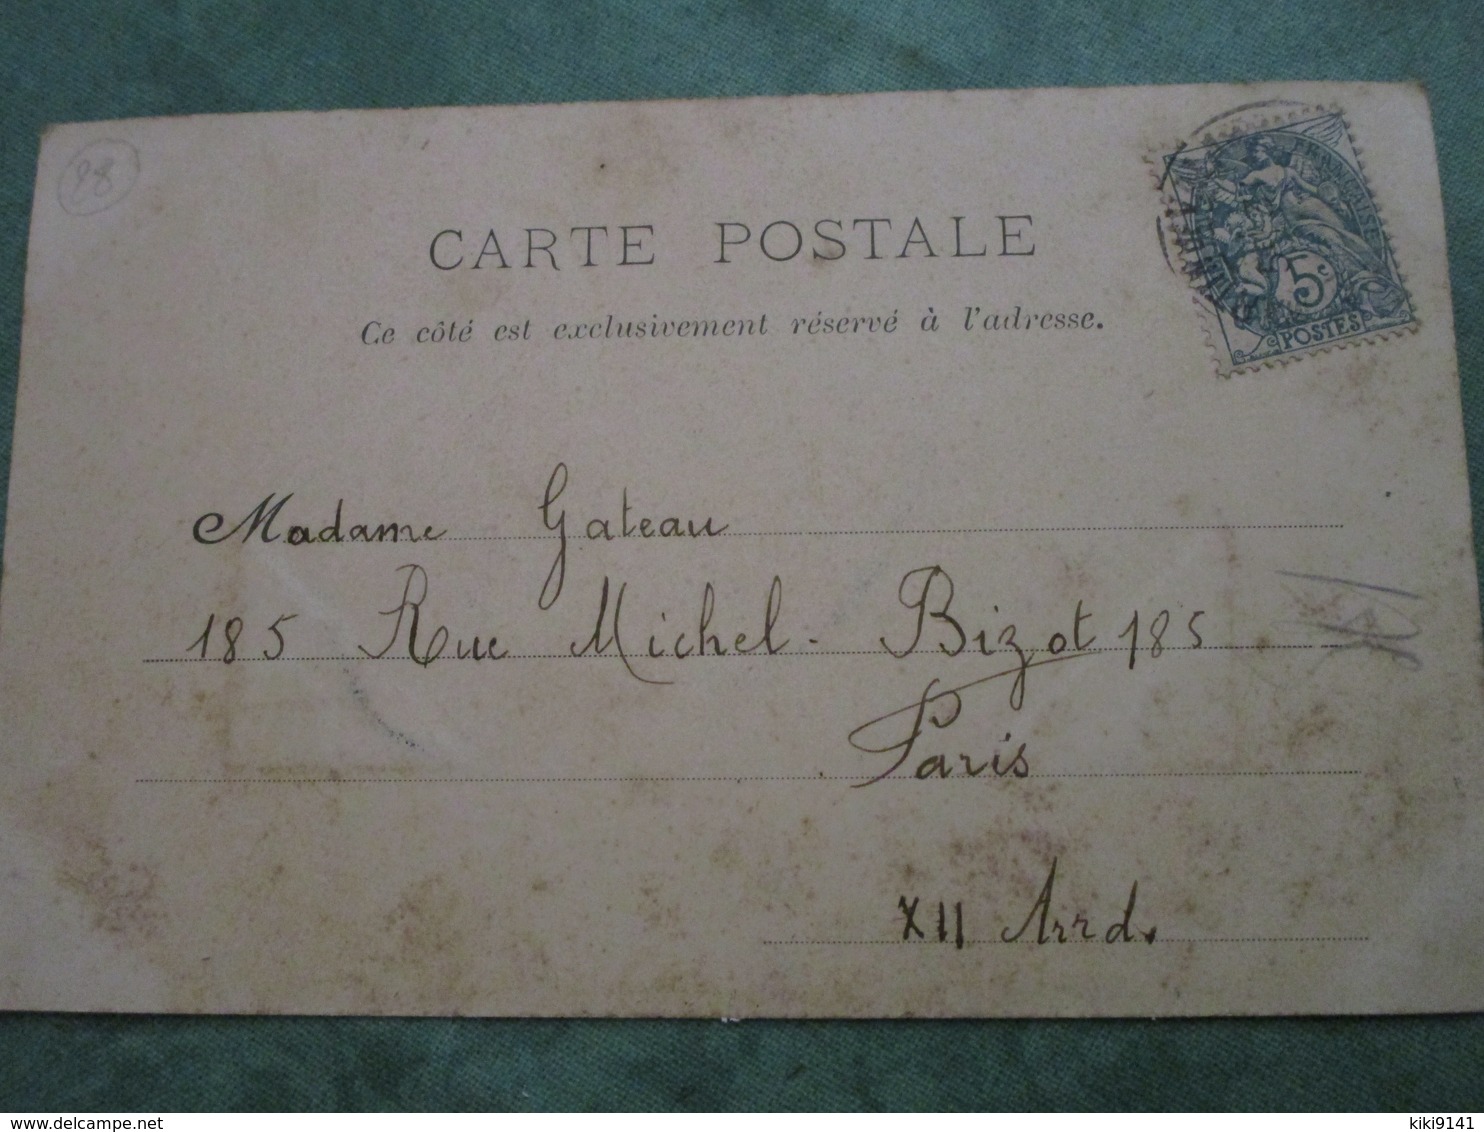 28
CARTE POSTALE
Ce côté est exclusivement réservé à l'adresse.
FRANÇAISE
5c
POSTES
Madame Gateau
185 Rue Michel-Bizot 185
Paris
XII Arrd.
delcampe.net
kiki9141